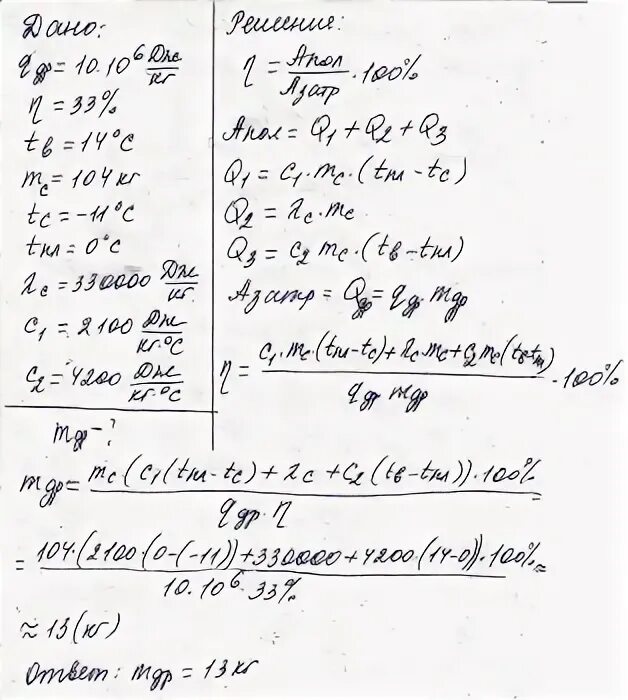 Дано:
qдр = 10·10⁶ Дж/кг
η = 33%
tв = 14°C
mc = 104 кг
tc = -11°C
tпл = 0°C
λc = 330000 Дж/кг
c₁ = 2100 Дж/кг·°C
c₂ = 4200 Дж/кг·°C
mдр - ?
Решение:
η = Aпол/Aзатр · 100%
Aпол = Q₁ + Q₂ + Q₃
Q₁ = c₁·mc·(tпл - tc)
Q₂ = λc·mc
Q₃ = c₂ mc·(tв - tпл)
Aзатр = Qдр = qдр·mдр
η = c₁·mc·(tпл - tc) + λc mc + c₂ mc(tв - tпл)/qдр mдр · 100%
mдр = mc(c₁(tпл - tc) + λc + c₂(tв - tпл))·100%/qдр·η =
= 104·(2100·(0-(-11)) + 330000 + 4200·(14-0))·100%/10·10⁶·33% ≈
≈ 13 (кг)
Ответ: mдр = 13 кг